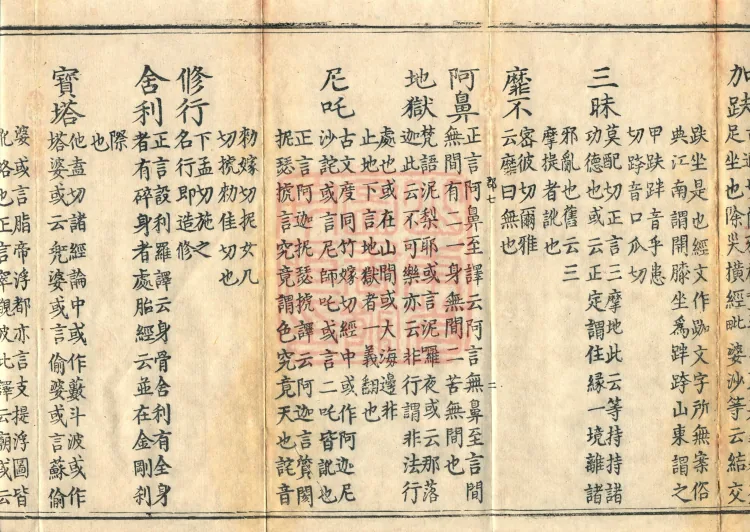 加趺
足坐也除災橫經毗婆沙等云結交
趺坐是也經文作跏文字所無案俗
典江南謂開膝坐爲跘跨山東謂之
甲趺跘音乎患
切跨音口瓜切
三昧
莫配切正言三摩地此云等持持諸
功德也或云正定謂住緣一境離諸
邪亂也舊云三
摩提者訛也
靡不
密彼切爾雅
云靡曰無也
阿鼻
正言阿鼻至譯云阿言無鼻至言間
無間有二一身無間二苦無間也
地獄
梵語泥梨耶或言泥羅夜或云那落
迦此云不可樂亦云非行謂非法行
處也或在山間或大海邊非
止地下言地獄者一義翻也
尼吒
古文度同竹嫁切經中或作阿迦尼
沙詫或言尼師吒或言二吒皆訛也
正言阿迦抳瑟搋譯云阿迦言質閡
抳瑟搋言究竟謂色究竟天也詫音
勑嫁切抳女几
切搋勑佳切也
修行
下孟切施之
名行即造修
舍利
正言設利羅譯云身骨舍利有全身
者有碎身者處胎經云並在金剛利
際
也
寶塔
他盍切諸經論中或作藪斗波或作
塔婆或云兜婆或言偷婆或言蘇偷
婆或言脂帝浮都亦言支提浮圖皆
訛略也正言窣覩波此譯云廟或云